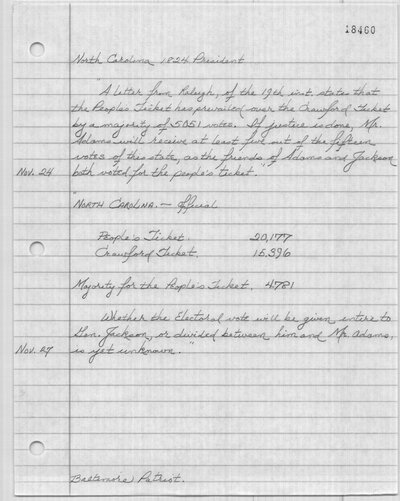 18460
North Carolina 1824 President
"A letter from Raleigh, of the 19th inst. states that
the People's Ticket has prevailed over the Crawford Ticket
by a majority of 5051 votes. If justice is done, Mr.
Adams will receive at least five out of the fifteen
votes of this state, as the friends of Adams and Jackson
Nov. 24 both voted for the people's ticket."
"North Carolina. — Official
People's Ticket. 20,177
Crawford Ticket. 15,396
Majority for the People's Ticket. 4781
Whether the Electoral vote will be given entire to
Gen. Jackson, or divided between him and Mr. Adams,
Nov. 27 is yet unknown."
Baltimore Patriot.